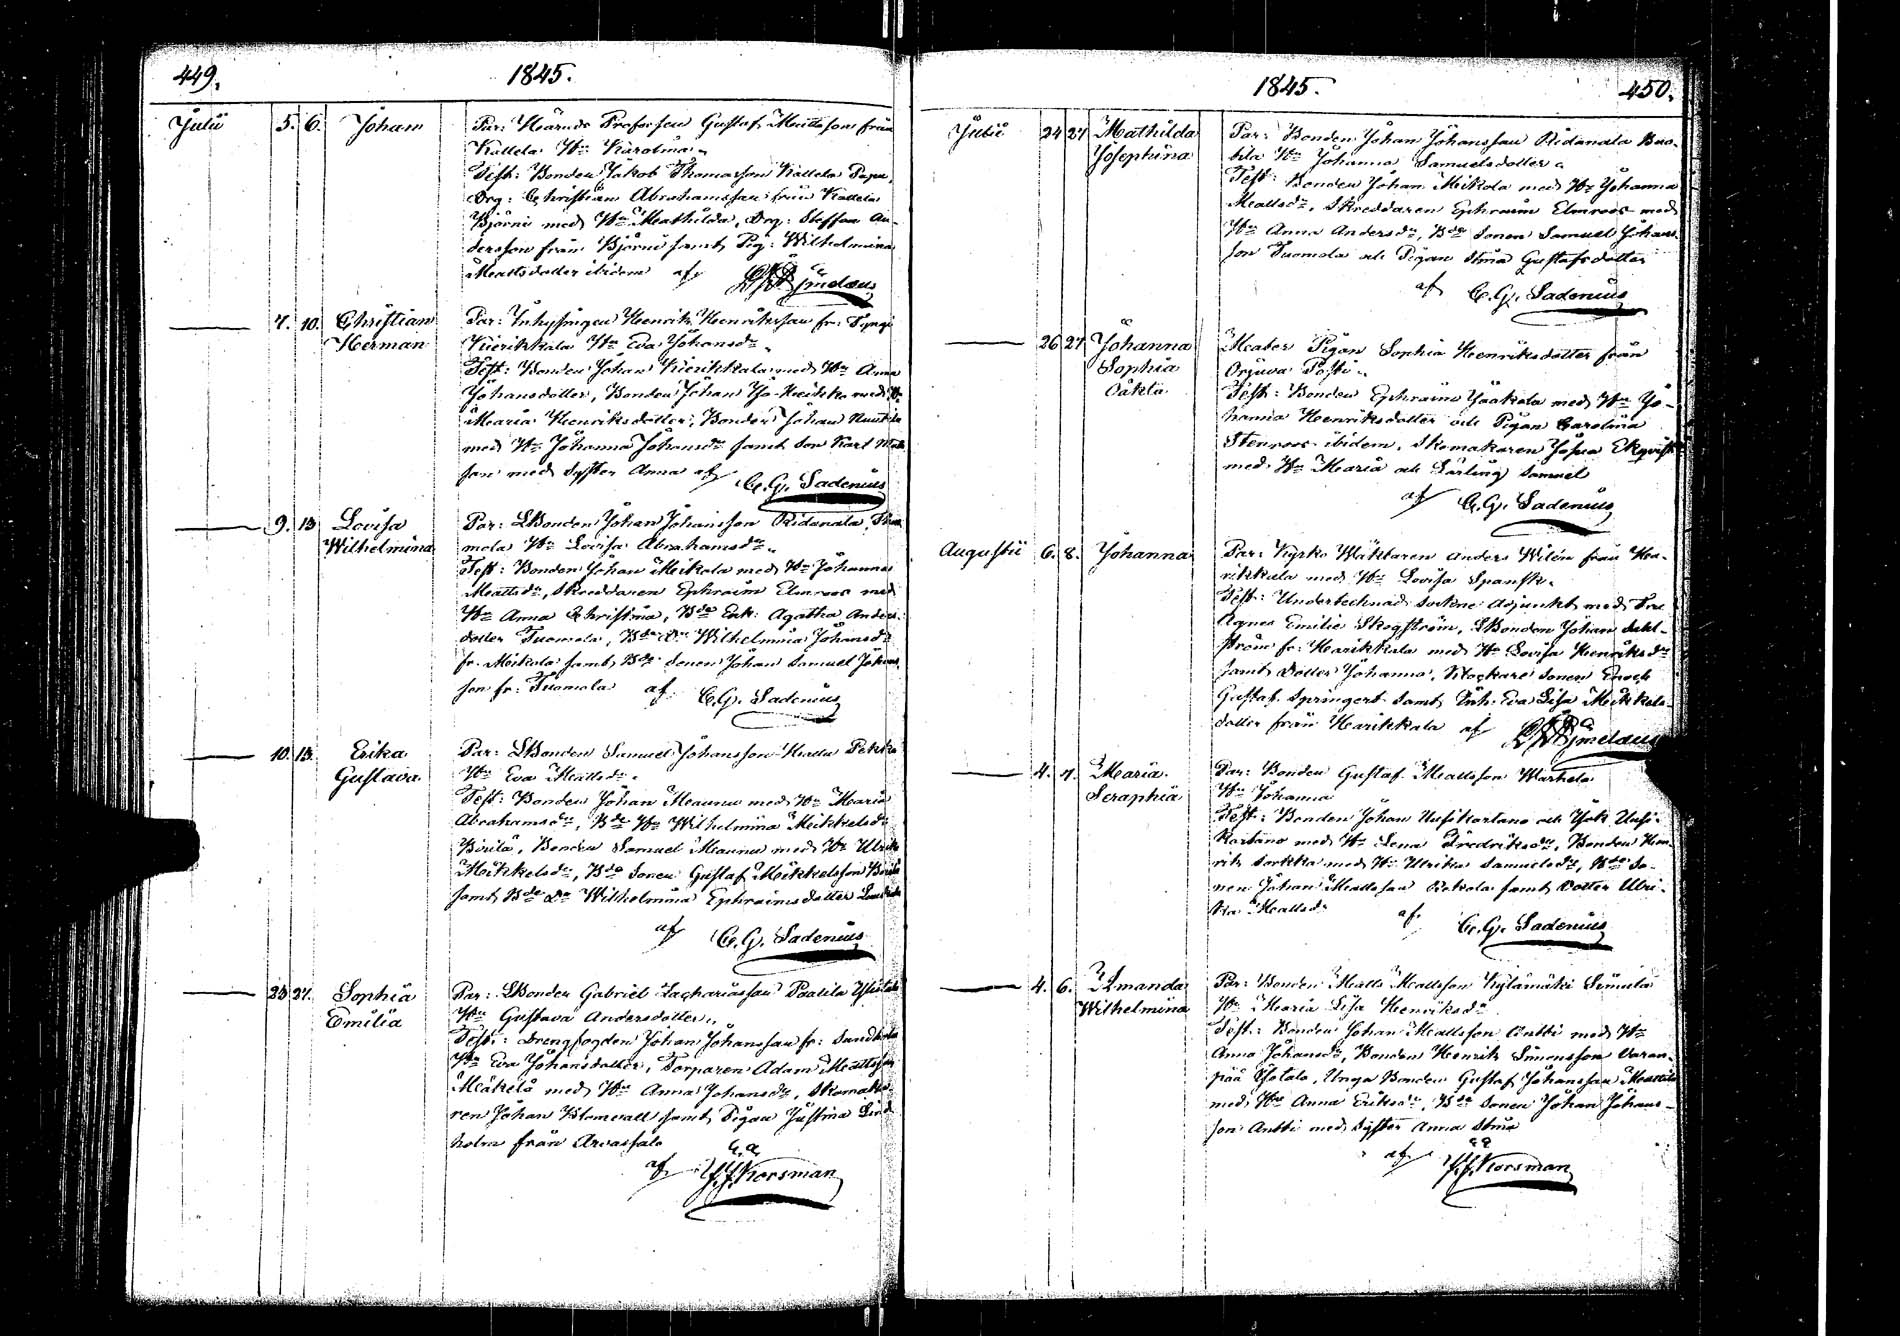 449.
1845.
Julii 5. 6. Johan
Par: Gustaf Mattsson från
Kallela H:u Karolina
Test: Bonden Jakob Thomasson Kallela
Drg: Christian Abrahamsson från Kallela
Björni med H:u Mathilda, Drg: Staffan An-
dersson från Björni samt Pig: Wilhelmina
Mattsdotter ibidem af
7. 10. Christian
Herman
Par: Inhysingen Henrik Henriksson fr:
Kierikkala H:u Eva Johansd:r
Test: Bonden Johan Kierikkala med H:u Anna
Johansdotter, Bonden Johan med H:u
Maria Henriksdotter, Bonden Johan
med H:u Johanna Johansd:r samt Son Karl
son med Syster Anna af C. G. Sadenius
9. 13. Lovisa
Wilhelmina
Par: LBonden Johan Johansson Ridanala,
mola H:u Lovisa Abrahamsd:r
Test: Bonden Johan Meikola med H:u Johanna
Mattsd:r, Skreddaren Ephraim Elmroos med
H:u Anna Christina, B:de Enk: Agatha Anders-
dotter Tuomola, B:de D:r Wilhelmina Johansd:r
fr: Meikola samt B:de Sonen Johan Samuel Johans-
son fr: Tuomola af C. G. Sadenius
10. 13. Erika
Gustava
Par: LBonden Samuel Johansson Pekka
H:u Eva Mattsd:r
Test: Bonden Johan Maunu med H:u Maria
Abrahamsd:r, B:de H:u Wilhelmina Mikkelsd:r
Bonden Samuel Maunu med H:u Ulrika
Mikkelsd:r, B:de Sonen Gustaf Mikkelsson
samt B:de D:r Wilhelmina Ephraimsdotter
af C. G. Sadenius
23 27. Sophia
Emilia
Par: LBonden Gabriel Zachariasson
H:u Gustava Andersdotter
Test: Drengfogden Johan Johansson fr:
H:u Eva Johansdotter, Torparen Adam Mattsson
Mäkelä med H:u Anna Johansd:r, Skomaka-
ren Johan Blomvall samt Pigan Justina Lind-
holm från Arvassalo
af J. J. Korsman
1845.
450.
Julii 24 27 Mathilda
Josephina
Par: Bonden Johan Johansson Ridanala
H:u Johanna Samuelsdotter
Test: Bonden Johan Meikola med H:u Johanna
Mattsd:r, Skreddaren Ephraim Elmroos med
H:u Anna Andersd:r, B:de Sonen Samuel Johans-
son Tuomola och Pigan Stina Gustafsdotter
af C. G. Sadenius
26 27 Johanna
Sophia
Oäkta
Mater Pigan Sophia Henriksdotter från
Test: Bonden Ephraim Jaakola med H:u Jo-
hanna Henriksdotter och Pigan Carolina
Stenroos ibidem, Skomakaren Josua Ekqvist
med H:u Maria och Lärling Samuel
af C. G. Sadenius
Augustii 6. 8. Johanna
Par: Kyrko Wäktaren Anders Wilén från Ha-
rikkala med H:u Lovisa Spansk.
Test: Undertecknad Sockne Adjunkt med Fru
Agnes Emilie Skogström, LBonden Johan Dahl-
ström fr: Harikkala med H:u Lovisa Henriksd:r
samt Dotter Johanna, Klockare Sonen Enoch
Gustaf Springert samt Inh: Eva Lisa Mikkels-
dotter från Harikkala af
4. 7. Maria
Seraphia
Par: Bonden Gustaf Mattsson Warhela
H:u Johanna
Test: Bonden Johan Uusikartano och Jak: Uusi-
kartano med H:u Lena Fredriksd:r, Bonden Hen-
rik Sorkka med H:u Ulrika Samuelsd:r, B:de So-
nen Johan Mattsson samt Dotter Ulri-
ka Mattsd:r af C. G. Sadenius
4. 6. Amanda
Wilhelmina
Par: Bonden Matts Mattsson Kylämäki Simula
H:u Maria Lisa Henriksd:r
Test: Bonden Johan Mattsson Antti med H:u
Anna Johansd:r, Bonden Henrik Simonsson Varan-
pää Isotalo, Unga Bonden Gustaf Johansson Mattila
med H:u Anna Eriksd:r, B:de Sonen Johan Johans-
son Antti med Syster Anna Stina
af J. J. Korsman